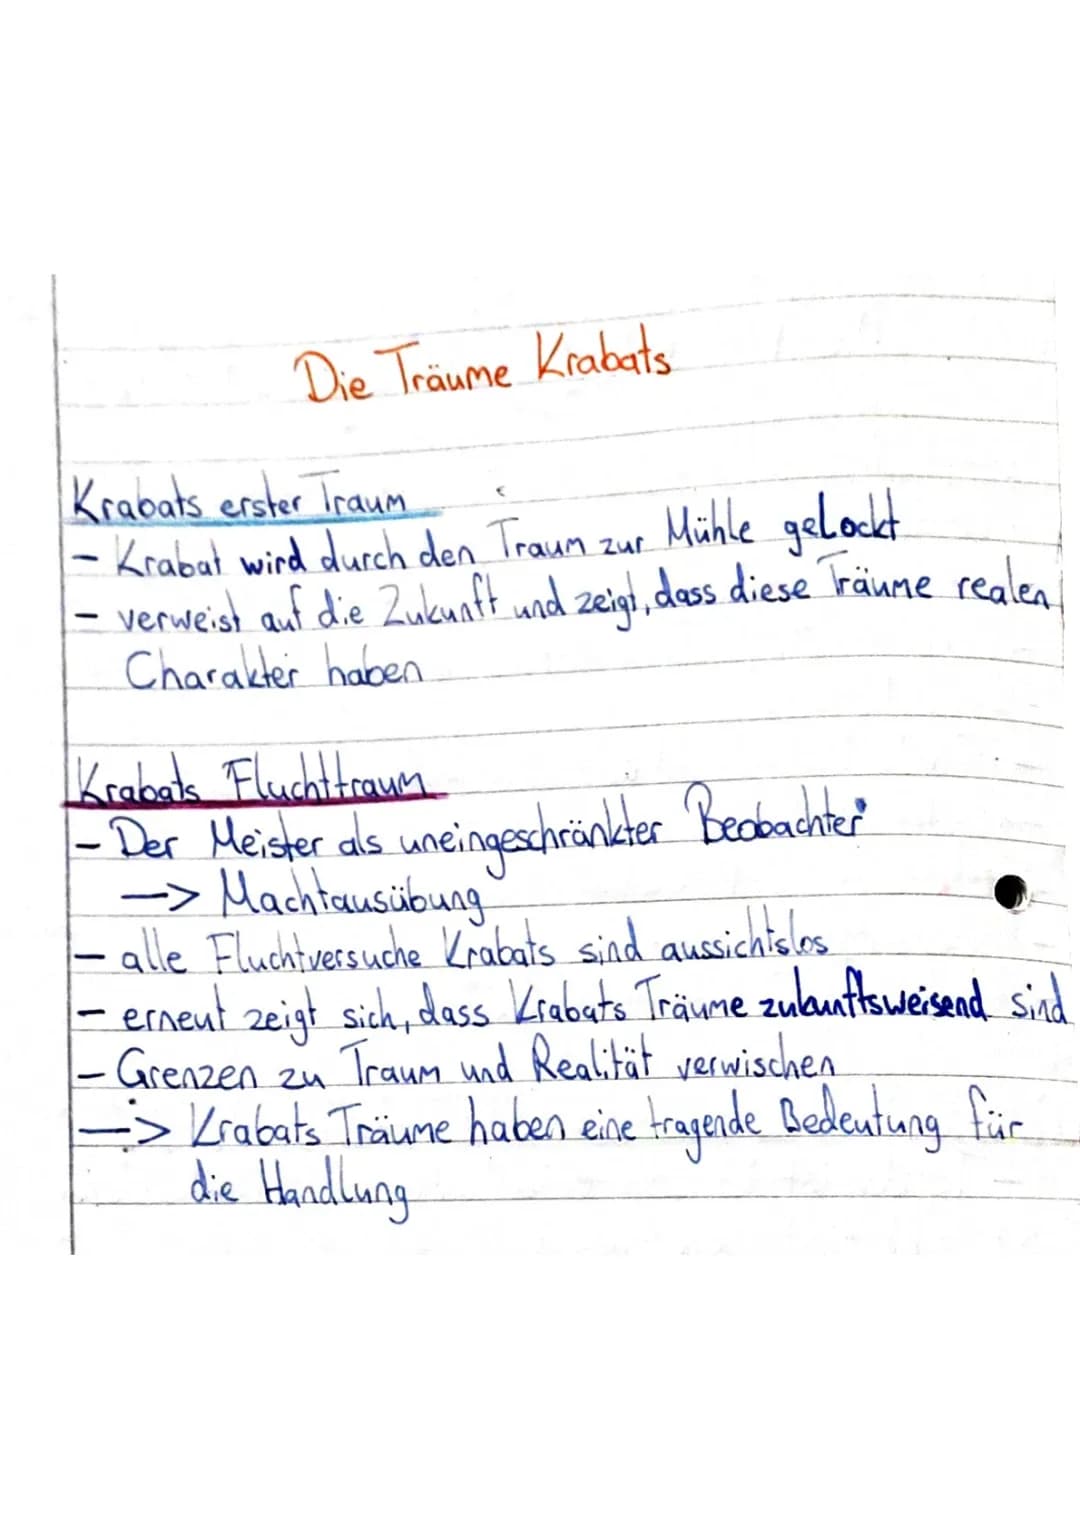 Die Träume Krabats
Krabats erster Traum
- Krabat wird durch den Traum zur Mühle gelockt
- verweist auf die Zukunft und zeigt, dass diese Träume realen
Charakter haben
Krabats Fluchttraum
- Der Meister als uneingeschränkter Beobachter
-> Machtausübung
- alle Fluchtversuche Krabats sind aussichtslos
- erneut zeigt sich, dass Krabats Träume zukunftsweisend sind
- Grenzen zu Traum und Realität verwischen
-> Krabats Träume haben eine tragende Bedeutung für
die Handlung